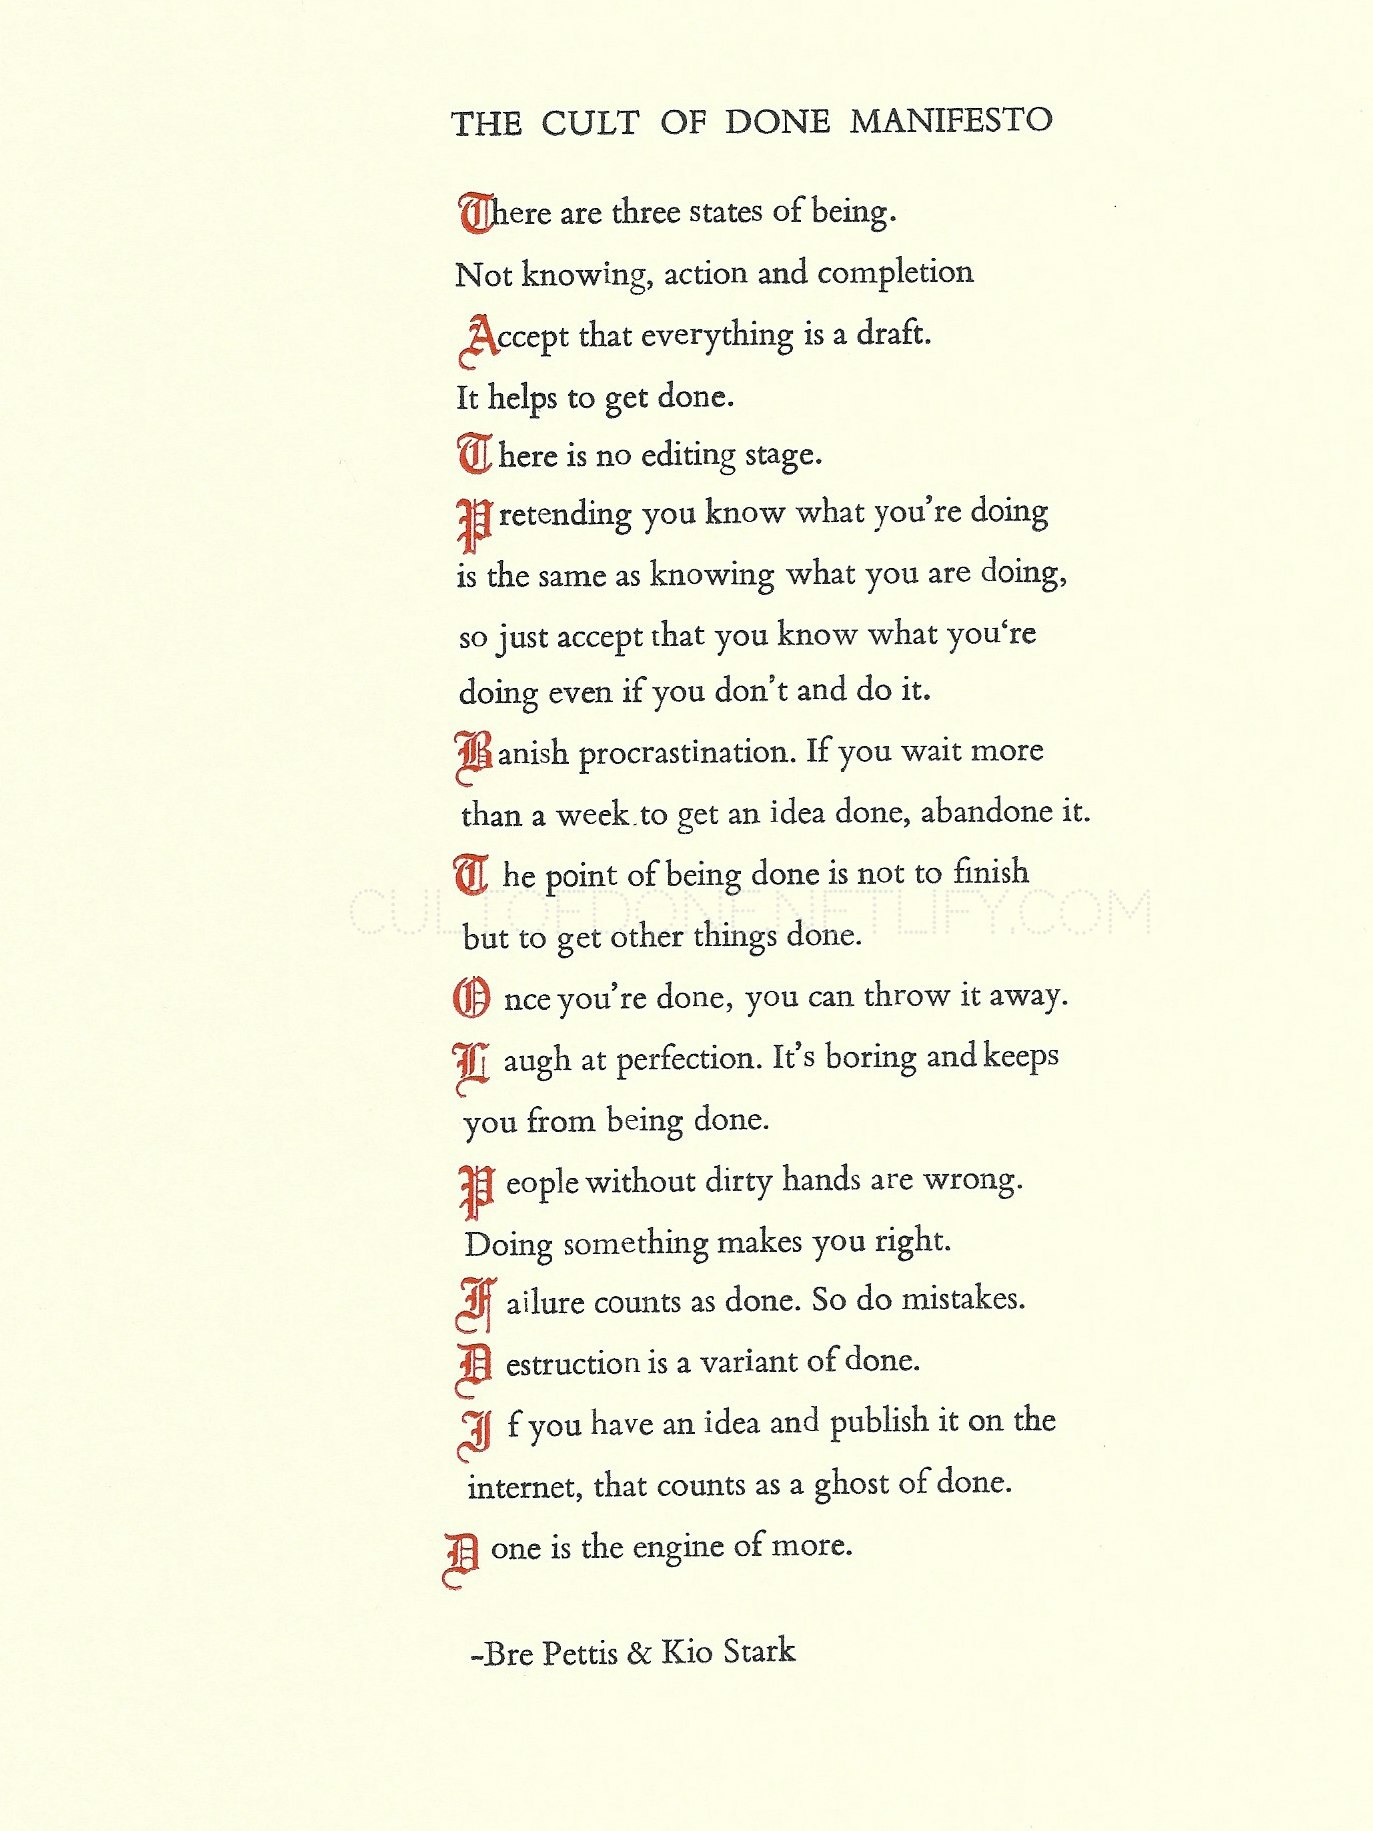 THE CULT OF DONE MANIFESTO
There are three states of being.
Not knowing, action and completion
Accept that everything is a draft.
It helps to get done.
There is no editing stage.
Pretending you know what you're doing
is the same as knowing what you are doing,
so just accept that you know what you‘re
doing even if you don't and do it.
Banish procrastination. If you wait more
than a week to get an idea done, abandone it.
The point of being done is not to finish
CULTOFDONE.NETLIFY.COM
but to get other things done.
Once you're done, you can throw it away.
Laugh at perfection. It's boring and keeps
you from being done.
People without dirty hands are wrong.
Doing something makes you right.
Failure counts as done. So do mistakes.
Destruction is a variant of done.
If you have an idea and publish it on the
internet, that counts as a ghost of done.
Done is the engine of more.
-Bre Pettis & Kio Stark